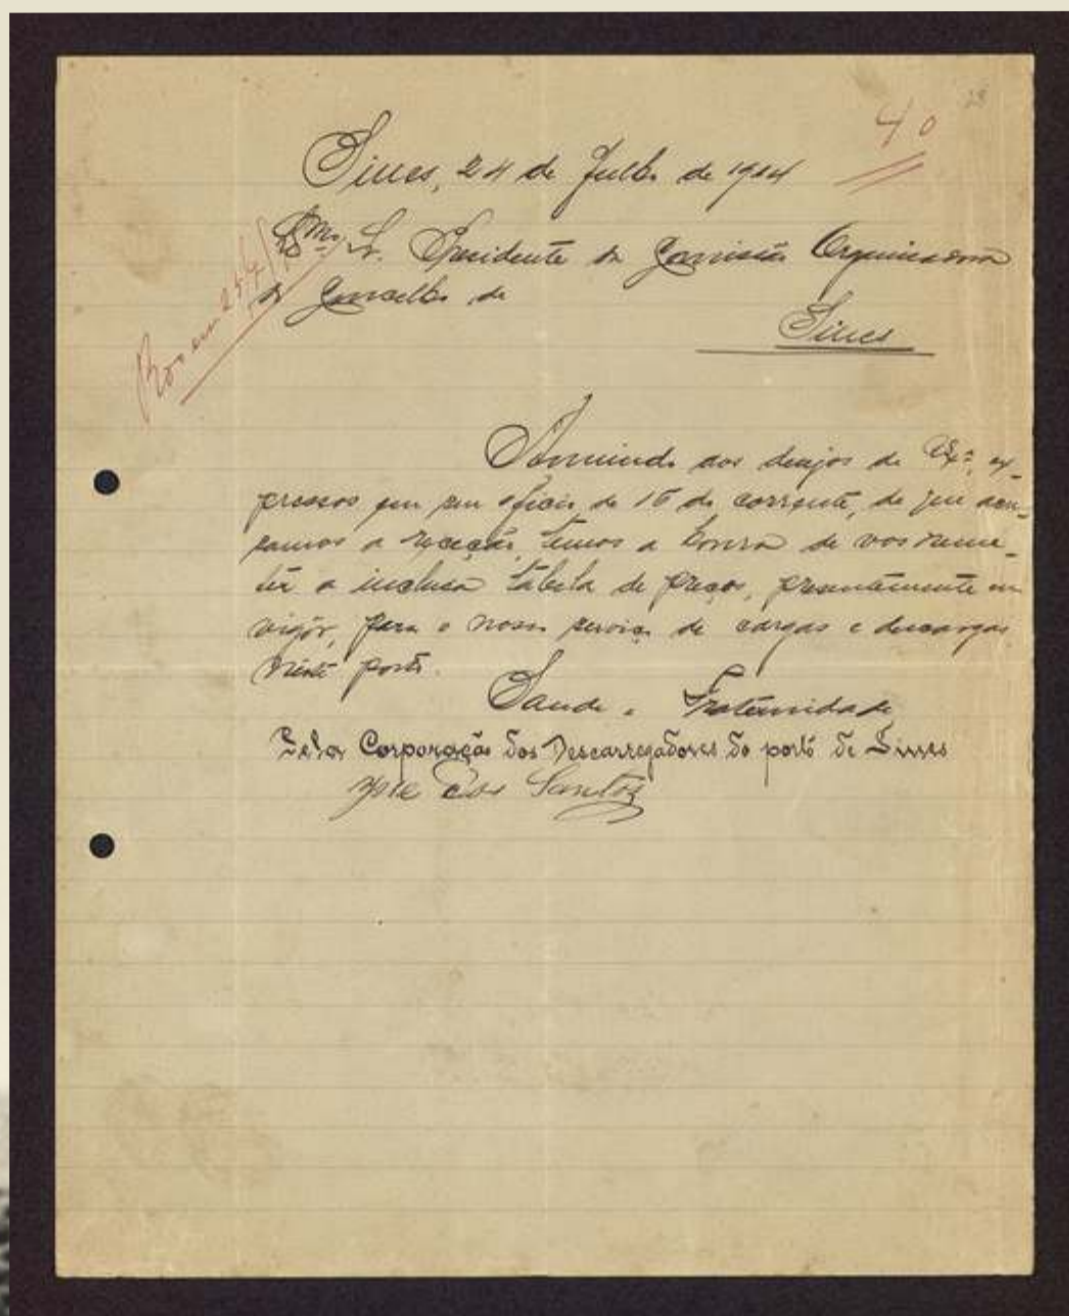 40
Sines, 24 de Julho de 1914
Exmo Sr. Presidente da Comissão Organisadora
do Concelho de
Sines
Anuindo aos desejos de V. Exª, ex-
pressos em seu oficio de 16 do corrente, de que acu-
samos a receção, temos a honra de vos reme-
ter a inclusa tabela de preços, presentemente em
vigôr, para o nosso serviço de cargas e descargas
neste porto.
Saude e Fraternidade
Pela Corporação dos Descarregadores do porto de Sines
José dos Santos